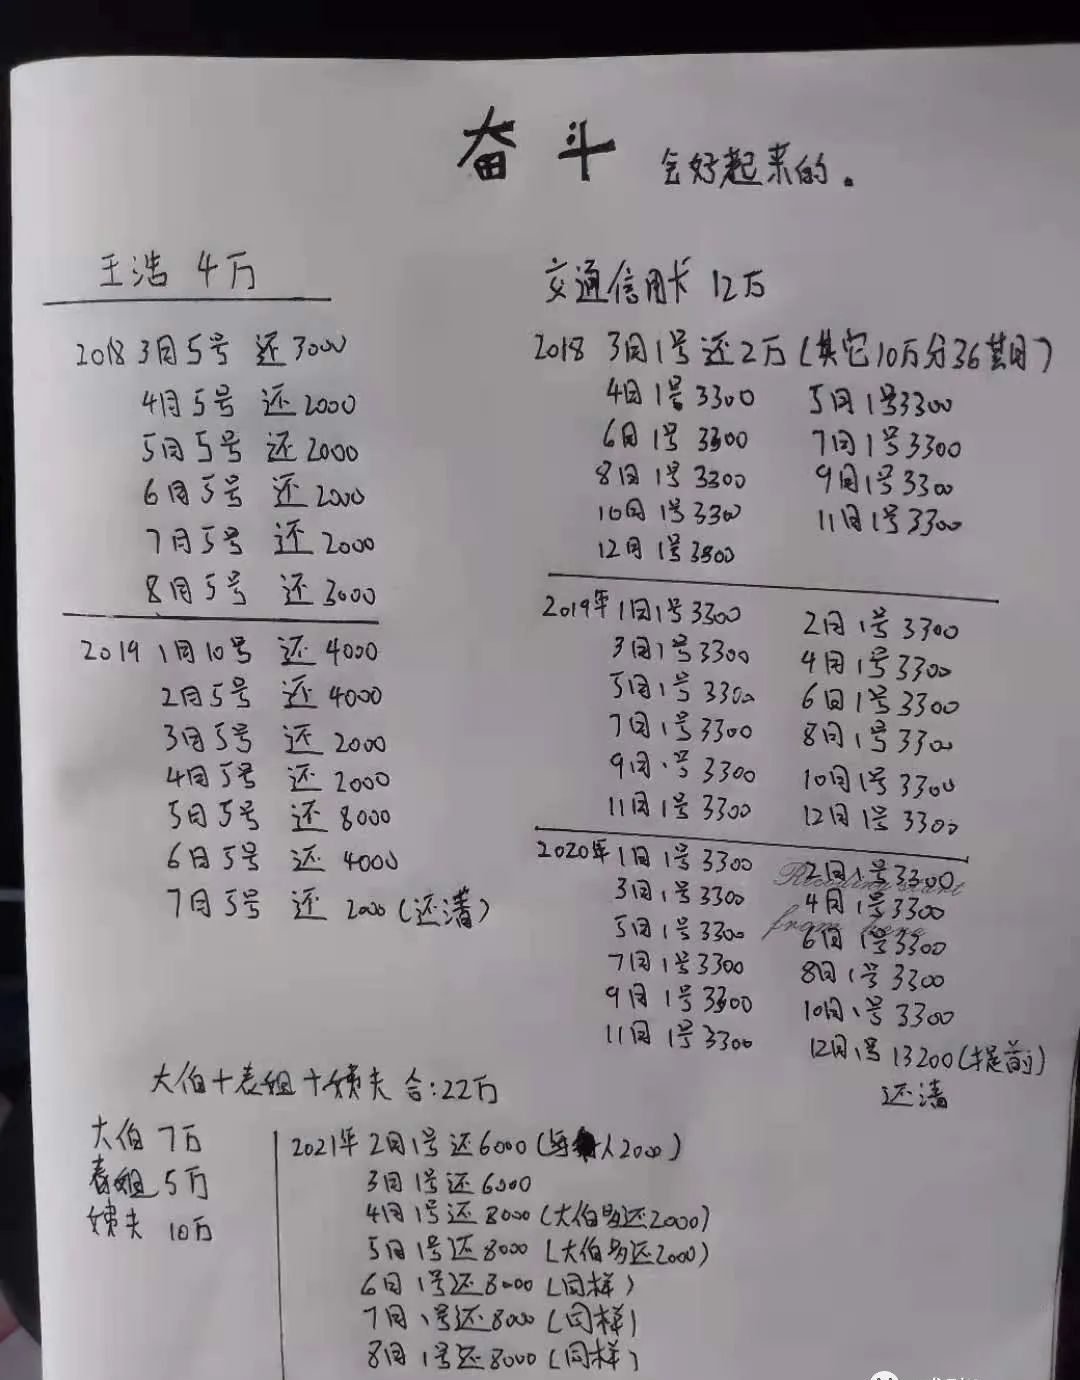 奋斗 会好起来的。
王浩 4万
2018 3月5号 还3000
4月5号 还2000
5月5号 还2000
6月5号 还2000
7月5号 还2000
8月5号 还3000
2019 1月10号 还4000
2月5号 还4000
3月5号 还2000
4月5号 还2000
5月5号 还8000
6月5号 还4000
7月5号 还2000(还清)
交通信用卡 12万
2018 3月1号还2万(其它10万分36期)
4月1号3300 5月1号3300
6月1号3300 7月1号3300
8月1号3300 9月1号3300
10月1号3300 11月1号3300
12月1号3300
2019年1月1号3300 2月1号3300
3月1号3300 4月1号3300
5月1号3300 6月1号3300
7月1号3300 8月1号3300
9月1号3300 10月1号3300
11月1号3300 12月1号3300
2020年1月1号3300 2月1号3300
3月1号3300 4月1号3300
5月1号3300 6月1号3300
7月1号3300 8月1号3300
9月1号3300 10月1号3300
11月1号3300 12月1号13200(提前)
还清
from here
大伯+表姐+姨夫 合:22万
大伯 7万
表姐 5万
姨夫 10万
2021年2月1号还6000(每人2000)
3月1号还6000
4月1号还8000(大伯多还2000)
5月1号还8000(大伯多还2000)
6月1号还8000(同样)
7月1号还8000(同样)
8月1号还8000(同样)